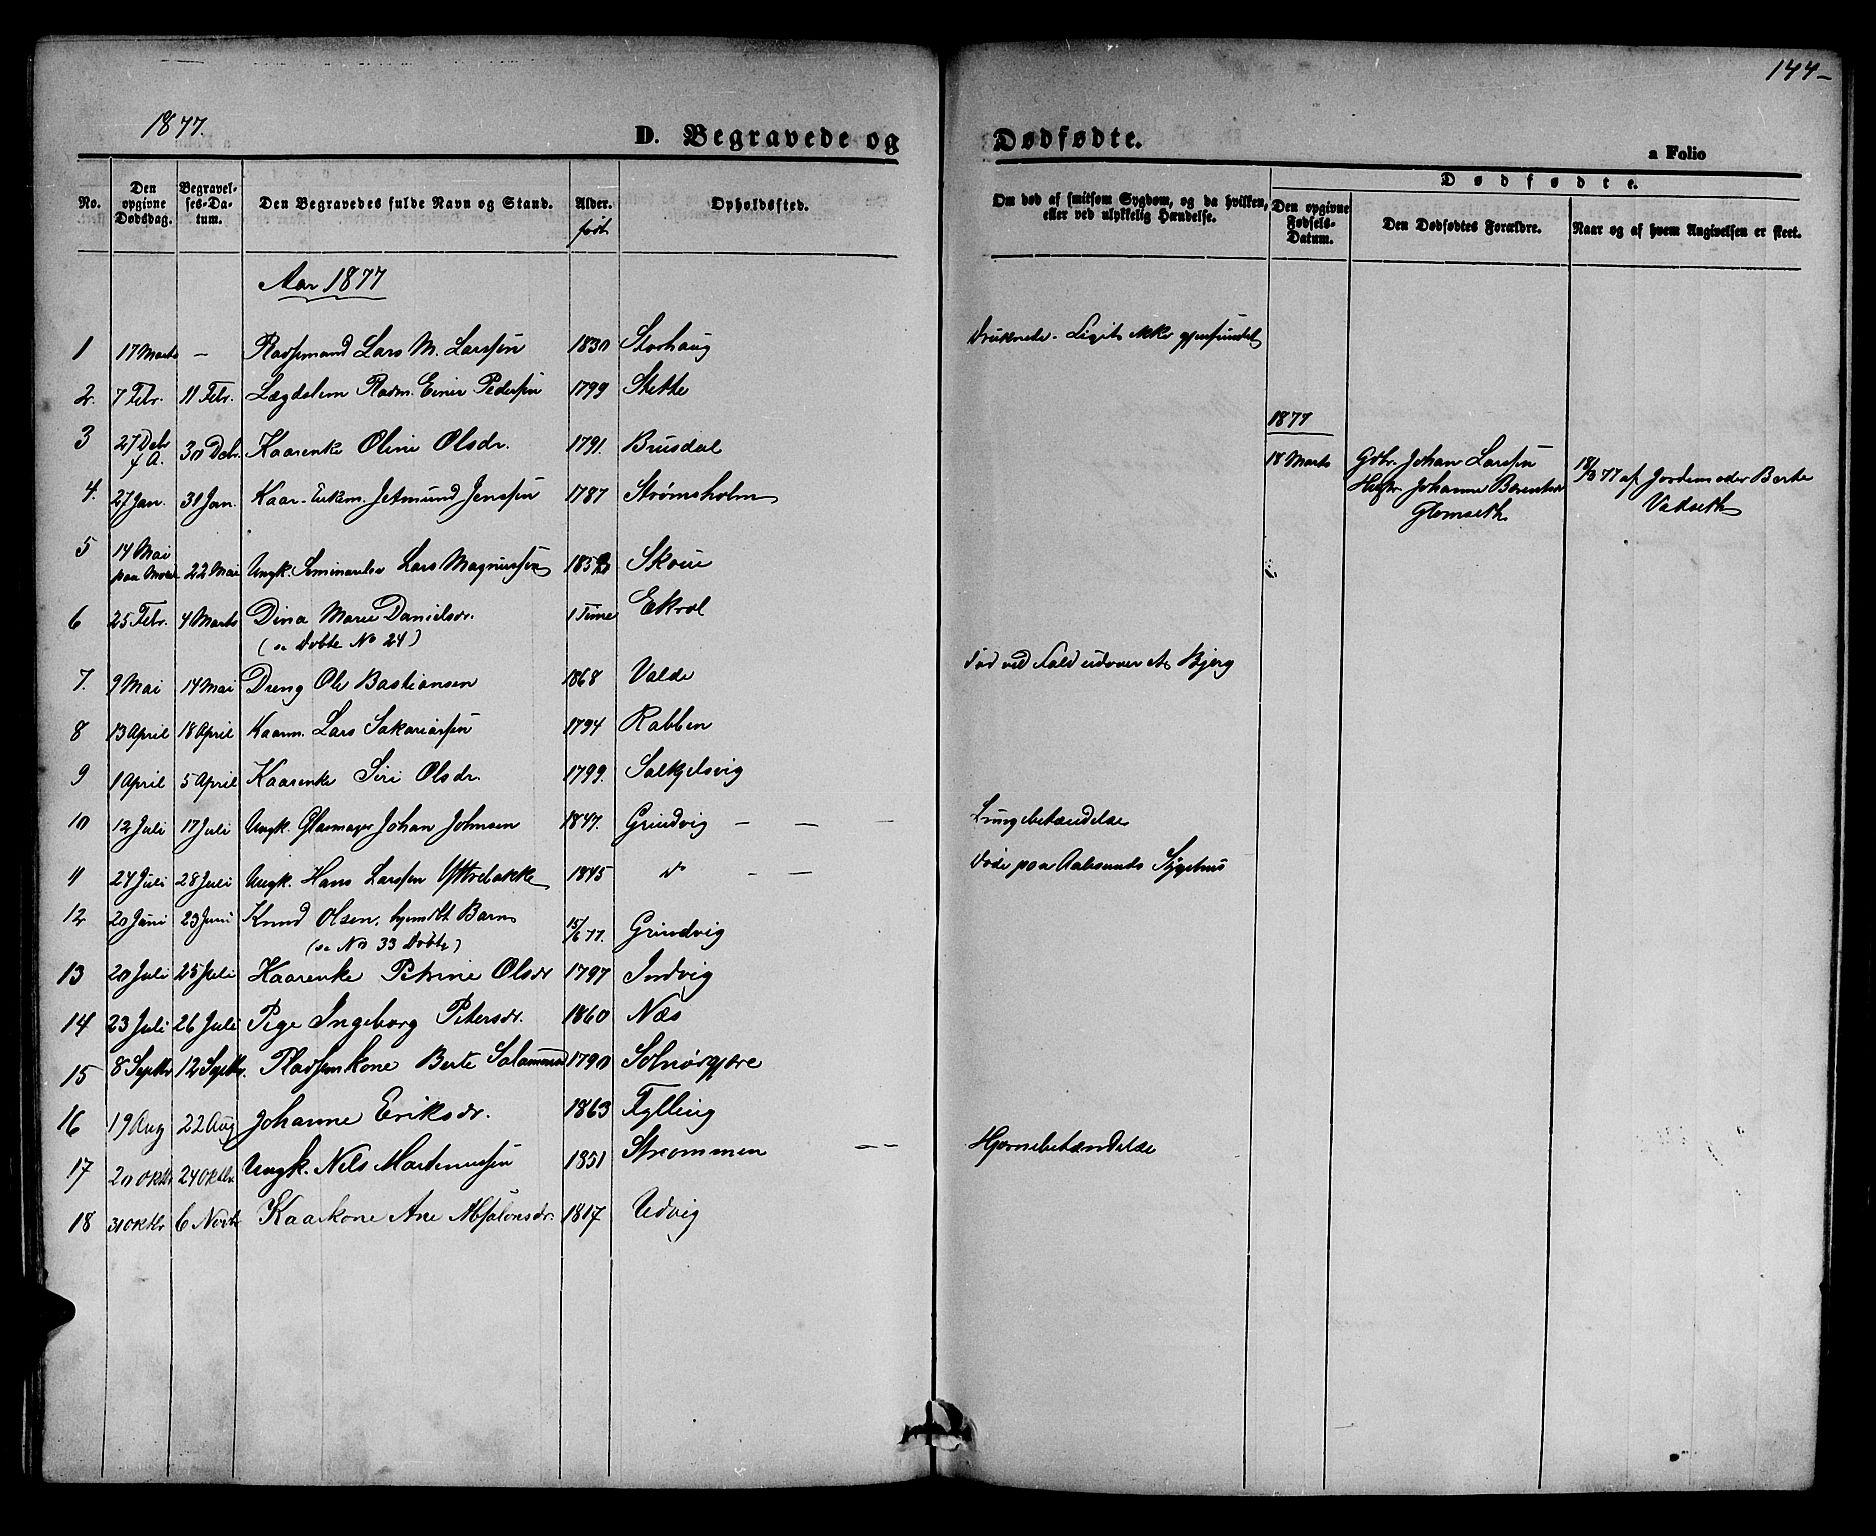 144-
1877.
D. Begravede og Dødfødte.
a Folio
No. | Den opgivne Dødsdag. | Begravelses-Datum. | Den Begravedes fulde Navn og Stand. | Alder. født | Opholdssted. | Om død af smitsom Sygdom, og da hvilken, eller ved ulykkelig Hændelse. | Dødfødte. | Den opgivne Fødsels-Datum. | Den Dødfødtes Forældre. | Naar og af hvem Angivelsen er skeet.
Aar 1877
1 | 17 Marts | - | Pladsmand Lars M. Larssen | 1830 | Storhaug | Druknede. Liget ikke gjenfundet
2. | 7 Febr. | 11 Febr. | Lægdslem Pladsm. Einer Pedersen | 1799 | Stette
3 | 27 Debr f. A. | 30 Debr. | Kaarenke Oline Olsdr. | 1791. | Brusdal
4. | 27 Jan. | 31 Jan. | Kaar-Enkm. Jetmund Jenssen | 1787 | Strømsholm
5 | 14 Mai paa | 22 Mai | Ungk. Seminarelev Lars Magnussen | Skoue
6 | 25 Febr. | 4 Marts | Dina Marie Danielsdr. | 1 Time | Ekrol
(se Døbte No 24)
7. | 9 Mai | 14 Mai | Dreng Ole Bastiansen | 1868 | Valde | død ved Fald udover et Bjerg
8 | 13 April | 18 April | Kaarm. Lars Sakariassen | 1794 | Rabben
9 | 1 April | 5 April | Kaarenke Siri Olsdr. | 1799. | Salkjelsvig
10 | 12 Juli | 17 Juli | Ungk. Glasmager Johan Johnsen | 1847. | Grindvig - - - | Lungebetændelse
11 | 24 Juli | 28 Juli | Ungk. Hans Larssen Yttrebakke | 1845 | do - - | døde paa Aalesunds Sygehus
12 | 20 Juni | 23 Juni | Knud Olsen, hjemdbt Barn | 15/6 77. | Grindvig
(se No 33 Døbte)
13 | 20 Juli | 25 Juli | Kaarenke Petrine Olsdr | 1797 | Indvig
14 | 23 Juli | 26 Juli | Pige Ingeborg Petersdr. | 1860 | Næs
15 | 8 Septbr | 12 Septbr. | Pladsenkone Berte Salamonsd | 1790 | Solnørgjære
16 | 19 Aug | 22 Aug | Johanne Eriksdr. | 1863 | Fylling
17 | 20 Oktbr | 24 Oktbr. | Ungk. Nils Martinussen | 1851 | Strømmen - - | Hjernebetændelse
18 | 31 Oktbr | 6 Novbr | Kaarkone Ane Absalonsdr. | 1817 | Udvig
1877
18 Marts | Gdbr. Johan Larssen | 18/3 77 af Jordemoder Berte
Hustr. Johanne Berentsdr | Vatneth
Glomseth